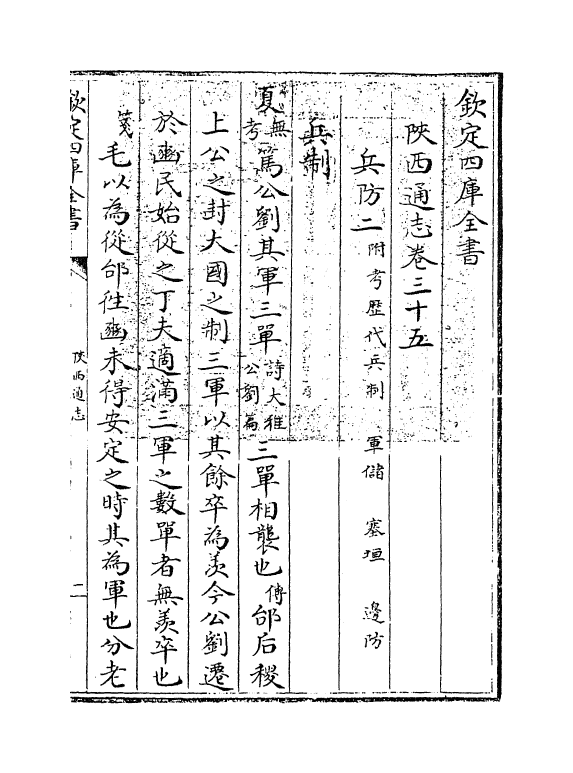 欽定四庫全書
陜西通志卷三十五
兵防二附考歴代兵制 軍儲 塞垣 邊防
兵制
夏無考篤公劉其軍三單詩大雅公劉篇三單相襲也傳邰后稷
上公之封大國之制三軍以其餘卒為羡今公劉遷
於豳民始從之丁夫適滿三軍之數單者無羡卒也
箋毛以為從邰徃豳未得安定之時其為軍也分老
欽定四庫全書
陜西通志